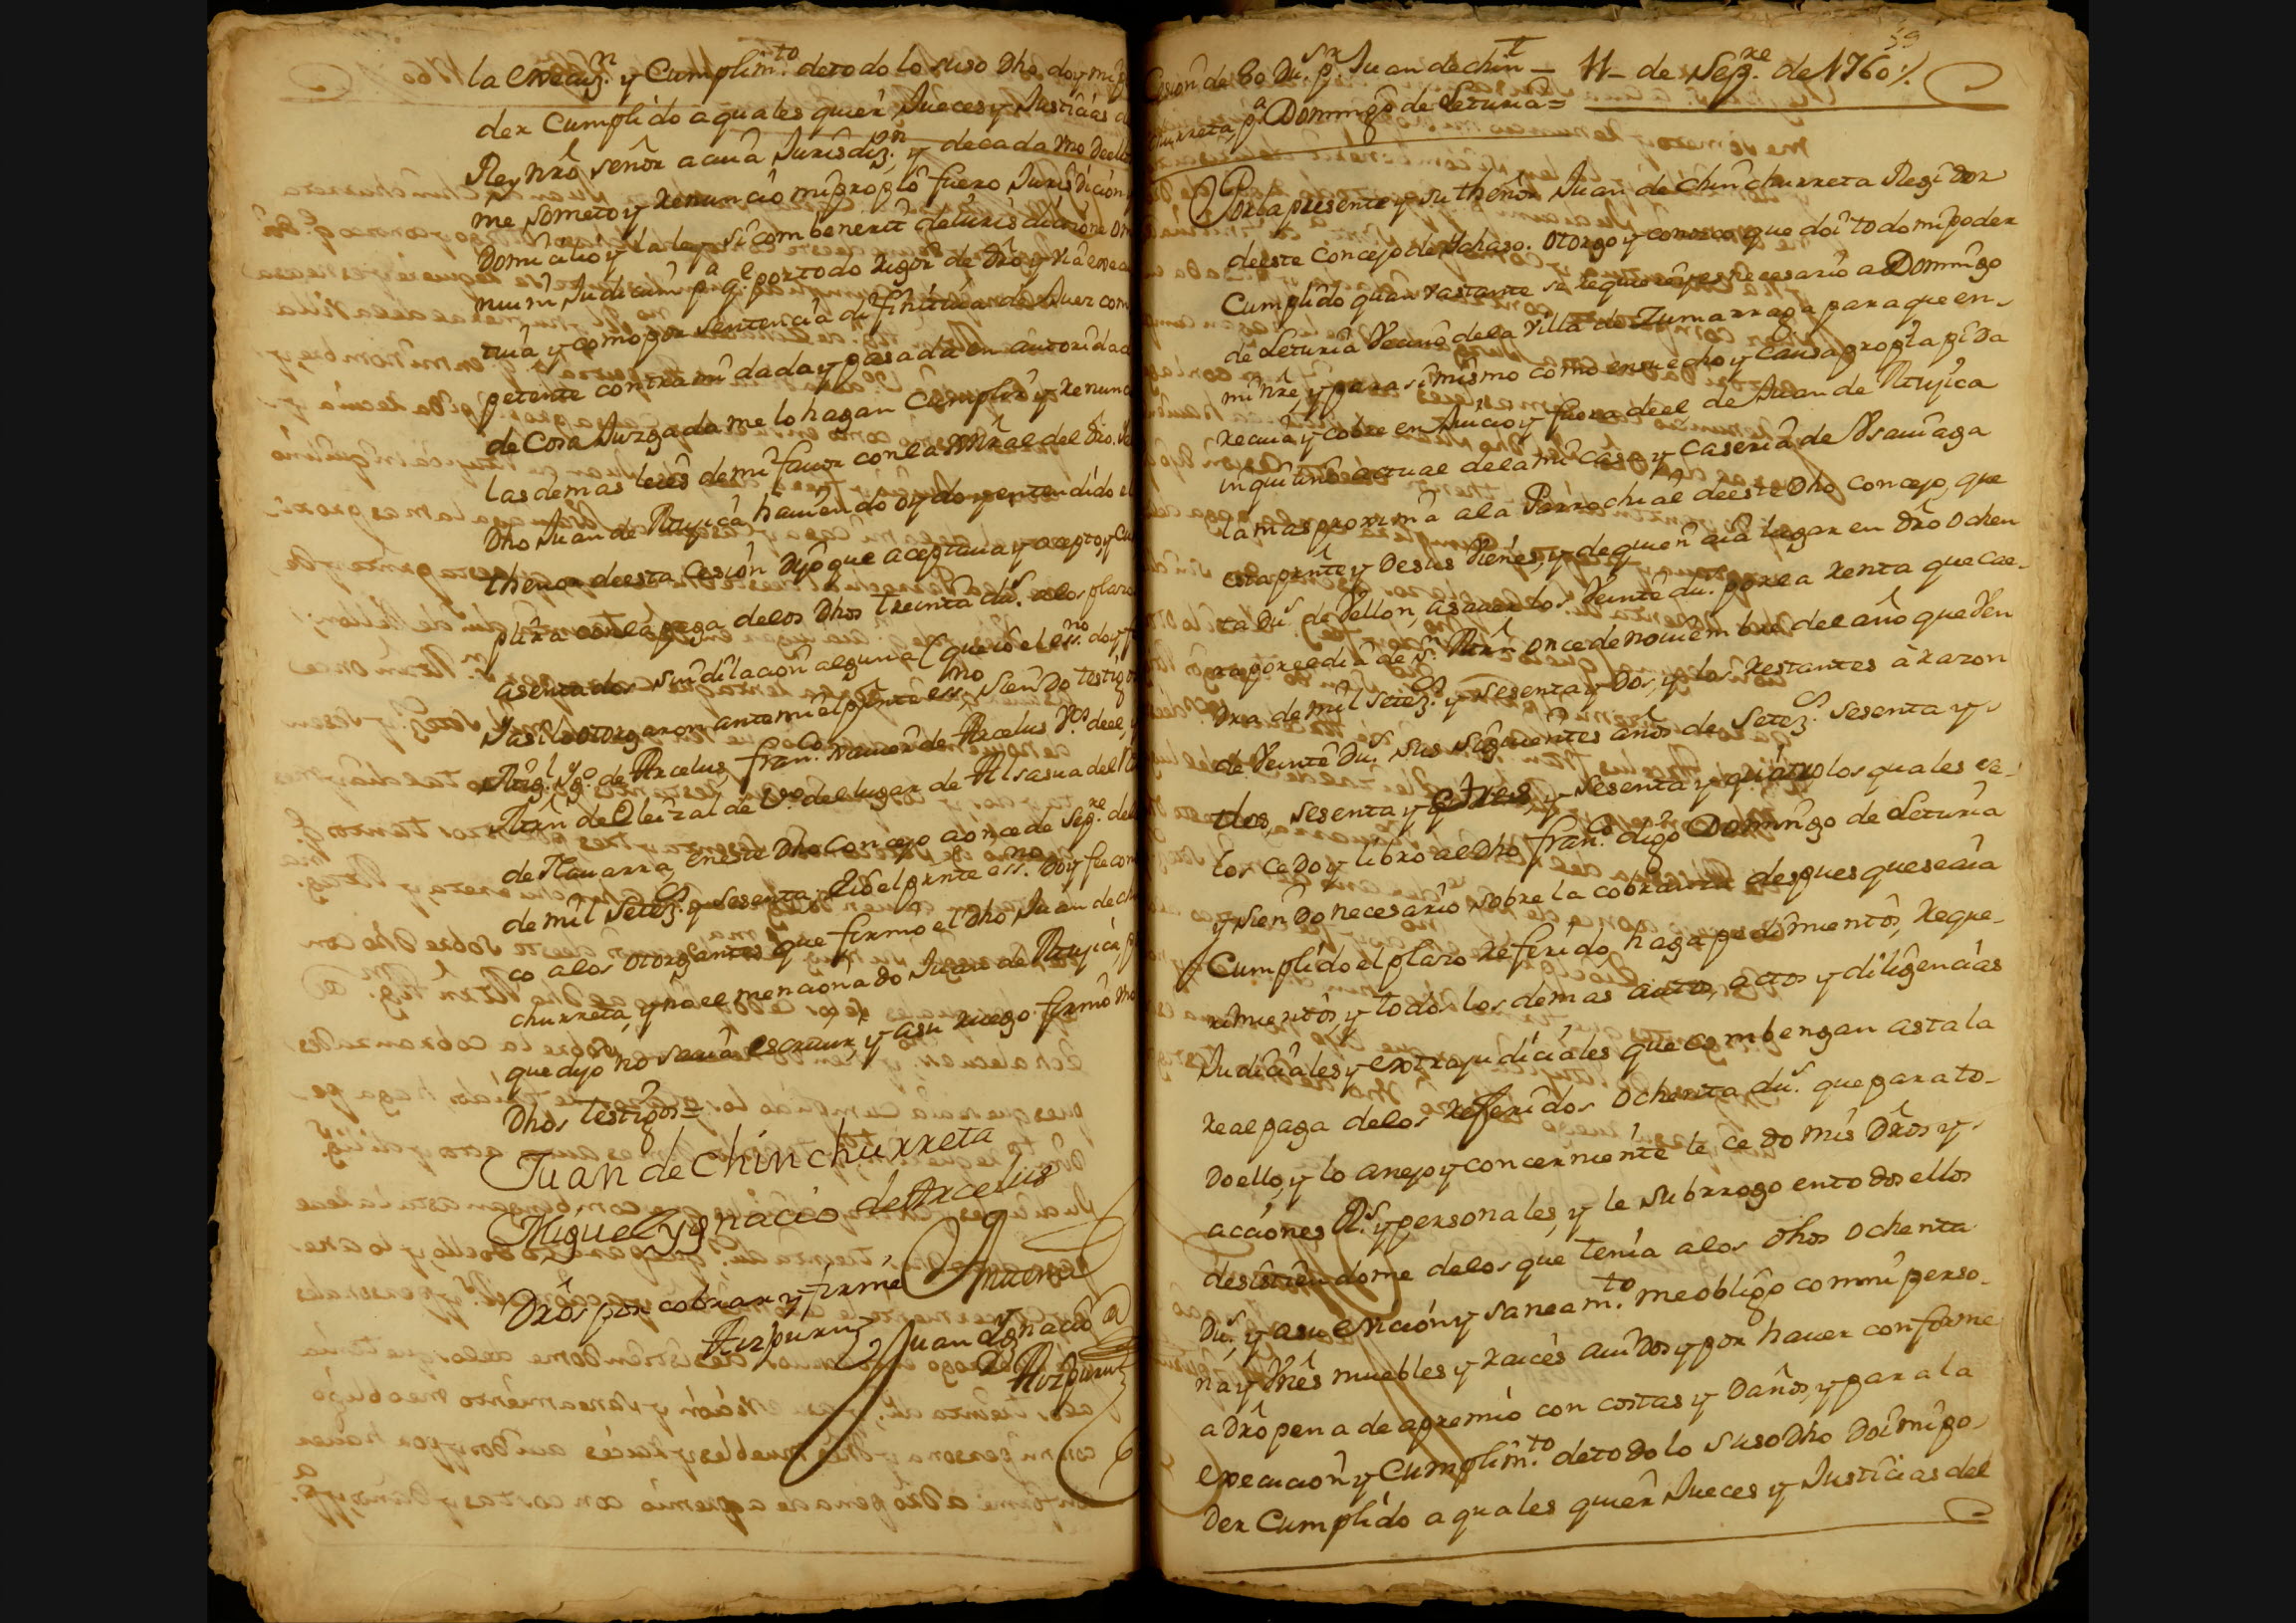 la execuz.n y Cumplim.to de todo lo suso dho doy mi p
der Cumplido a quales quier Jueces y Justicias d
Rey nrô señor a cuia Jurisdiz.n y de cada uno de ell
me someto y renuncio mi propio fuero Jurisdicion
Domicilio y la ley si combenerit de Jurisdicione om
nium Judicum p.a q.e por todo rigor de drô y via exea
tiua y como por sentencia difinitiua de Juez com
petente contra mi dada y pasada en autoridad
de Cosa Juzgada me lo hagan Cumplir y renunc
las demas leies de mi fauor con la xnrâl del dro. Y
dho Juan de Atuyica hauiendo oydo y entendido el
thenor de esta cesion dijo que aceptaua y acepto, y Cu
plira con la paga de los dhos treinta du.s a los plazo
asentados sin dilacion alguna (que io el ess.no doy f
Y asi lo otorgaron ante mi el prnte ess.no siendo testigo
Mig.l Yg.o de Arcelus, fran.co xauier de Arcelus v.os de el, y
Mrîn de Oleizalde v.o del lugar de Alsasua del R
de Nauarra, en este dho Concejo a once de Sep.re del
de mil setez.s y sesenta; E io el prnte ess.no doy fee con
co a los otorgantes que firmo el dho Juan de ch
churreta, y no el mencionado Juan de Atuyica, p
que dijo no sauia escriuir, y a su ruego firmô uno
dhos testigos =
Juan de Chinchurreta
Miguel Ygnacio de Arcelus
Drôs por cobrar y firme Ante mi
Aizpuru Juan Ygnacio
de Aizpuru
59
Cesion de 80 du.s p.r Juan de chin — 11 de Sep.re de 1760 %
churreta, p.a Domingo de Leturia =
Por la presente y su thenor Juan de Chinchurreta Regidor
de este Concejo de Ychaso. Otorgo y conozco que doi todo mi poder
Cumplido quan vastante se requiere y es necesario a Domingo
de Leturia Vecino de la Villa de Zumarraga para que en
mi nrê, y para si mismo como en su echo y causa propia pida
reciua y cobre en Juicio y fuera de el, de Juan de Atuyica
inquilino actual de la mi Casa y Caseria de Vsauiaga
la mas proxima a la Parrochial de este dho Concejo, que
esta prnte y de sus vienes, y de quien aia lugar en drô ochen
ta du.s de vellon, a sauer los veinte du.s por la renta que cae
ra por el dia de S.n Mrîn once de nouiembre del año que ven
dra de mil setez.s y sesenta y dos, y los restantes a razon
de veinte du.s sus siguientes años de setez.s sesenta y
tres, sesenta y tres, y sesenta y quatro los quales ce
los cedo y libro al dho fran.co digo Domingo de Leturia
y siendo necesario sobre la cobranza despues que seaia
Cumplido el plazo referido, haga pedimientos, reque
rimientos, y todos los demas autos, actos y diligencias
Judiciales y extrajudiciales que combengan asta la
real paga de los referidos ochenta du.s que para to
do ello, y lo anejo y concerniente le cedo mis drôs y
acciones R.s y personales, y le subrrogo en todos ellos
desistiendome de los que tenia a los dhos ochenta
du.s y a su eviccion y saneam.to me obligo con mi perso
na y vnês muebles y raices auidos y por hauer conforme
a drô pena de apremio con costas y daños, y para la
execucion y Cumplim.to de todo lo suso dho doi mi po
der Cumplido a quales quier Jueces y Justicias del